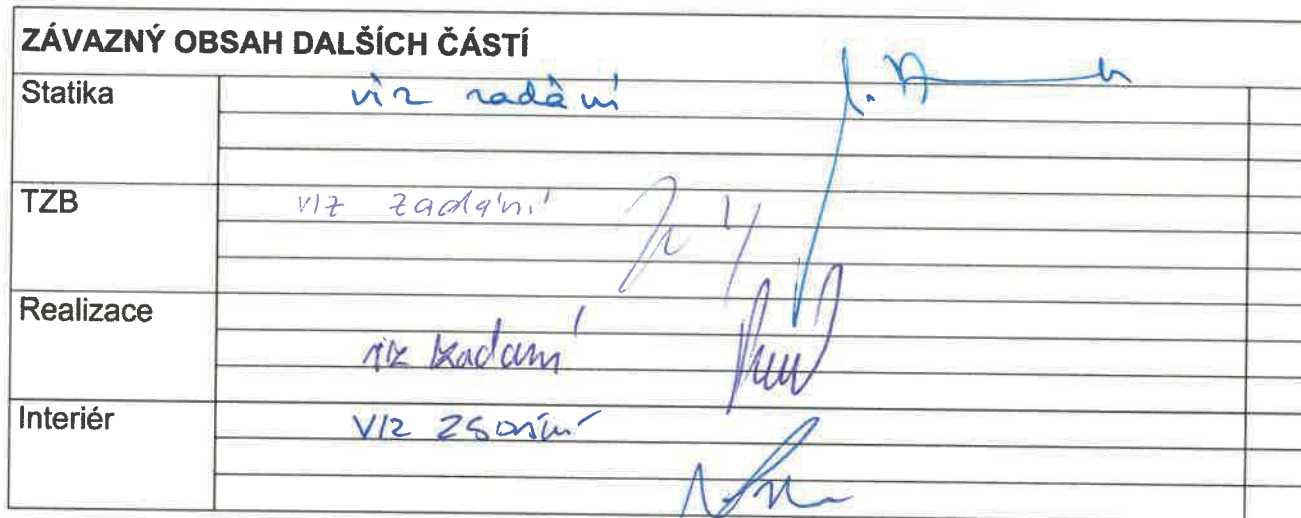 ZÁVAZNÝ OBSAH DALŠÍCH ČÁSTÍ
Statika viz zadání
TZB viz zadání
Realizace viz zadání
Interiér viz